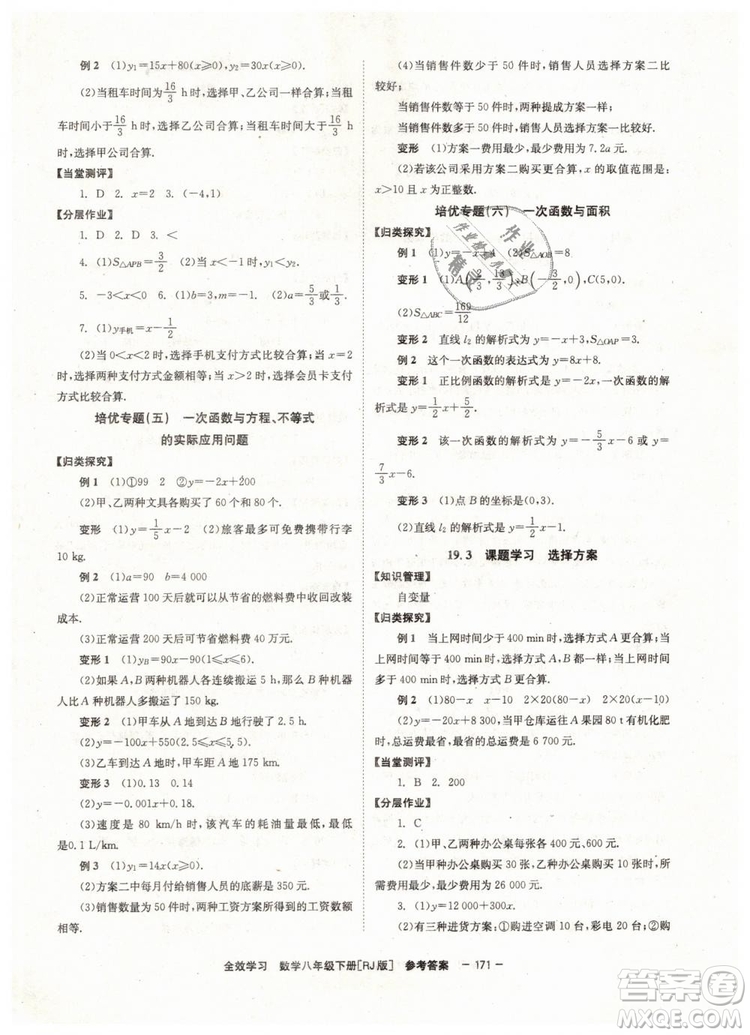 例2 (1)y₁=15x+80(x≥0),y₂=30x(x≥0).
(2)当租车时间为16/3 h时,选择甲、乙公司一样合算;当租
车时间小于16/3 h时,选择乙公司合算;当租车时间大于16/3 h
时,选择甲公司合算.
【当堂测评】
1. D 2. x=2 3. (-4,1)
【分层作业】
1. D 2. D 3. <
4. (1)S△APB=3/2 (2)x<-1时,y₁>y₂.
5. -3<x<0 6. (1)b=2 m=3 (2)a=5/3或a=1/3
7. (1)y手机=x-1/2
(2)当0<x<2时,选择手机支付方式比较合算;当x=2
时,两种支付方式金额相等;当x>2时,选择会员卡支付方
式比较合算.
培优专题(五) 一次函数与方程、不等式
的实际应用问题
【归类探究】
例1 (1)①99 2 ②y=-2x+200
(2)甲、乙两种文具各购买了60个和80个.
变形 (1)y=1/5x-2 (2)旅客最多可免费携带行李
10 kg.
例2 (1)a=90 b=4 000
(2)正常运营100天后可以从节省的燃料费中收回改装
成本.
(3)正常运营200天后可节省燃料费40万元.
变形1 (1)yB=90x-90(1≤x≤6).
(2)如果A、B两种机器人各连续搬运5 h,那么B种机
器人比A种机器人多搬运了150 kg.
变形2 (1)甲车从A地到B地的行驶了2.5 h.
(2)y=-100x+550(2.5≤x≤5.5).
(3)乙车到达A地时,甲车距A地175 km.
变形3 (1)0.13 0.14
(2)y=-0.001x+0.18.
(3)速度是80 km/h时,该汽车的耗油量最低,最低是
0.1 L/km.
例3 (1)y₁=14x(x≥0).
(2)方案二中每月付给销售人员的底薪为350元.
(3)销售数量为50件时,两种方案的提成总额相等.
(4)当销售件数少于50件时,销售人员选择方案二比
较好;
当销售件数等于50件时,两种提成方案一样;
当销售件数多于50件时,销售人员选择方案一比较好.
变形 (1)方案一费用最少,最少费用为7.2a元.
(2)若该公司采用方案二购买更合算,x的取值范围是
x>10且x为正整数.
培优专题(六) 一次函数与面积
【归类探究】
例1 (1)y=-x+4 (2)S△AOB=8
变形1 (1)A(2/3,13/3),B(-3/2,0),C(5,0).
(2)S△ABC=169/12
变形2 直线l₂的解析式为y=-x,S△OAP=
例2 这个一次函数的表达式为y=8x+8.
变形1 正比例函数的解析式为y=1/2x或y=2x.
变形2 该一次函数的解析式为y=-5/3x-6或y=
7/3x-6.
变形3 (1)点B的坐标是(0,3).
(2)直线l₂的解析式是y=1/2x-1.
19.3 课题学习 选择方案
【知识管理】
自变量
【归类探究】
例1 当上网时间少于400 min时,选择方式A更合算;当
上网时间等于400 min时,选择方式A、B都一样;当上网时间
多于400 min时,选择方式B更合算.
例2 (1)80-x x-10 2×20(80-x) 2×20(x-10)
(2)y关于x的函数表达式为y=-20x+8 300,当甲仓库运往A果园80吨有机化肥
时,总运费最省,总运费是6 700元.
【当堂测评】
1. B 2. 200
【分层作业】
1. C
2. (1)甲、乙两种办公桌每张各400元、600元.
(2)当甲种办公桌购买30张,乙种办公桌购买10张时,
购买的费用最少,最少费用为26 000元.
3. (1)有三种进货方案:①购进空调10台,彩电20台;②购
全效学习 数学八年级下册[RJ版] 参考答案 －171－
作业
作业检查小助手
精灵